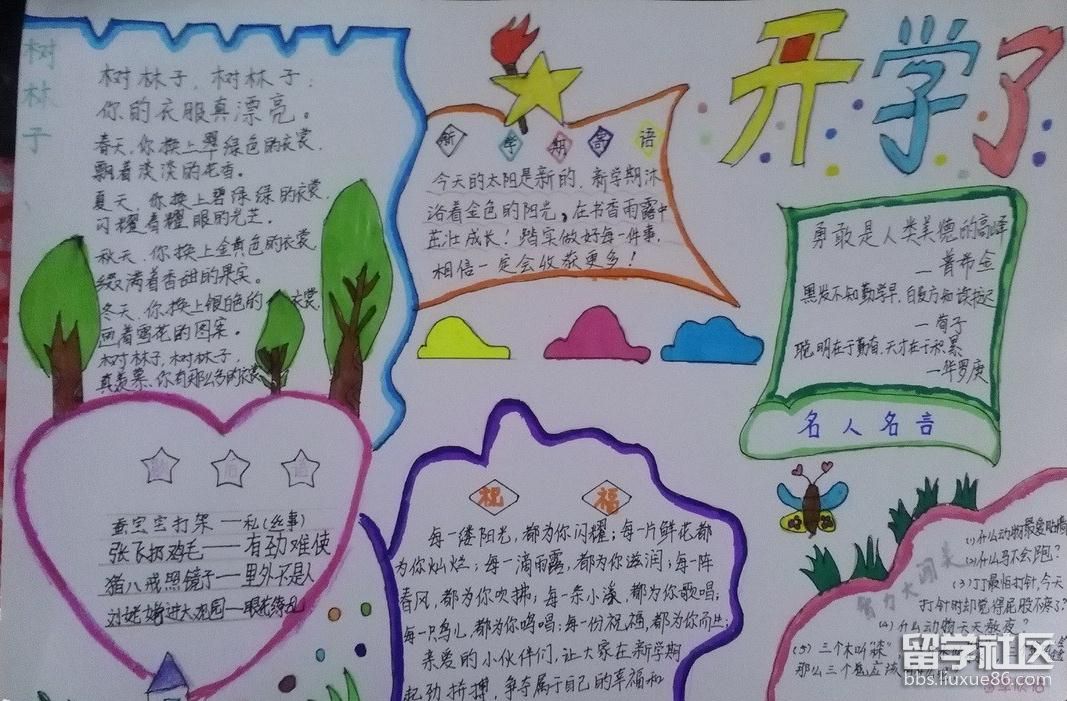 开学了
树林子
树林子,树林子:
你的衣服真漂亮。
春天,你换上翠绿色的衣裳,
飘着淡淡的花香。
夏天,你换上碧绿绿的衣裳,
闪耀着耀眼的光芒。
秋天,你换上金黄色的衣裳,
缀满着香甜的果实。
冬天,你换上银色的 衣裳
画着雪花的图案。
树林子,树林子,
真羡慕,你有那么多的衣裳
新学期寄语
今天的太阳是新的,新学期沐
浴着金色的阳光,在书香雨露中
茁壮成长!踏实做好每一件事,
相信一定会收获更多!
勇敢是人类美德的高峰
—普希金
黑发不知勤学早,白首方知读书迟
—荀子
聪明在于勤奋,天才在于积累
—华罗庚
名人名言
歇后语
蚕宝宝打架——私(丝事)
张飞抓鸡毛——有劲难使
猪八戒照镜子——里外不是人
刘姥姥进大观园——眼花缭乱
祝福
每一缕阳光,都为你闪耀;每一片鲜花都
为你灿烂;每一滴雨露,都为你滋润;每一阵
春风,都为你吹拂;每一条小溪,都为你歌唱;
每一只鸟儿,都为你鸣唱;每一份祝福,都为你而生;
亲爱的小伙伴们,让大家在新学期
起劲拼搏,争夺属于自己的幸福和
智力大闯关
(1)什么动物最爱贴墙
(2)什么马不会跑?
(3)丁丁最怕打针,今天
打针时却觉得屁股不疼了?
(4)什么动物天天熬夜?
(5)三个木叫"森",
那么三个鬼应该
留学社区
bbs.liuxue86.com